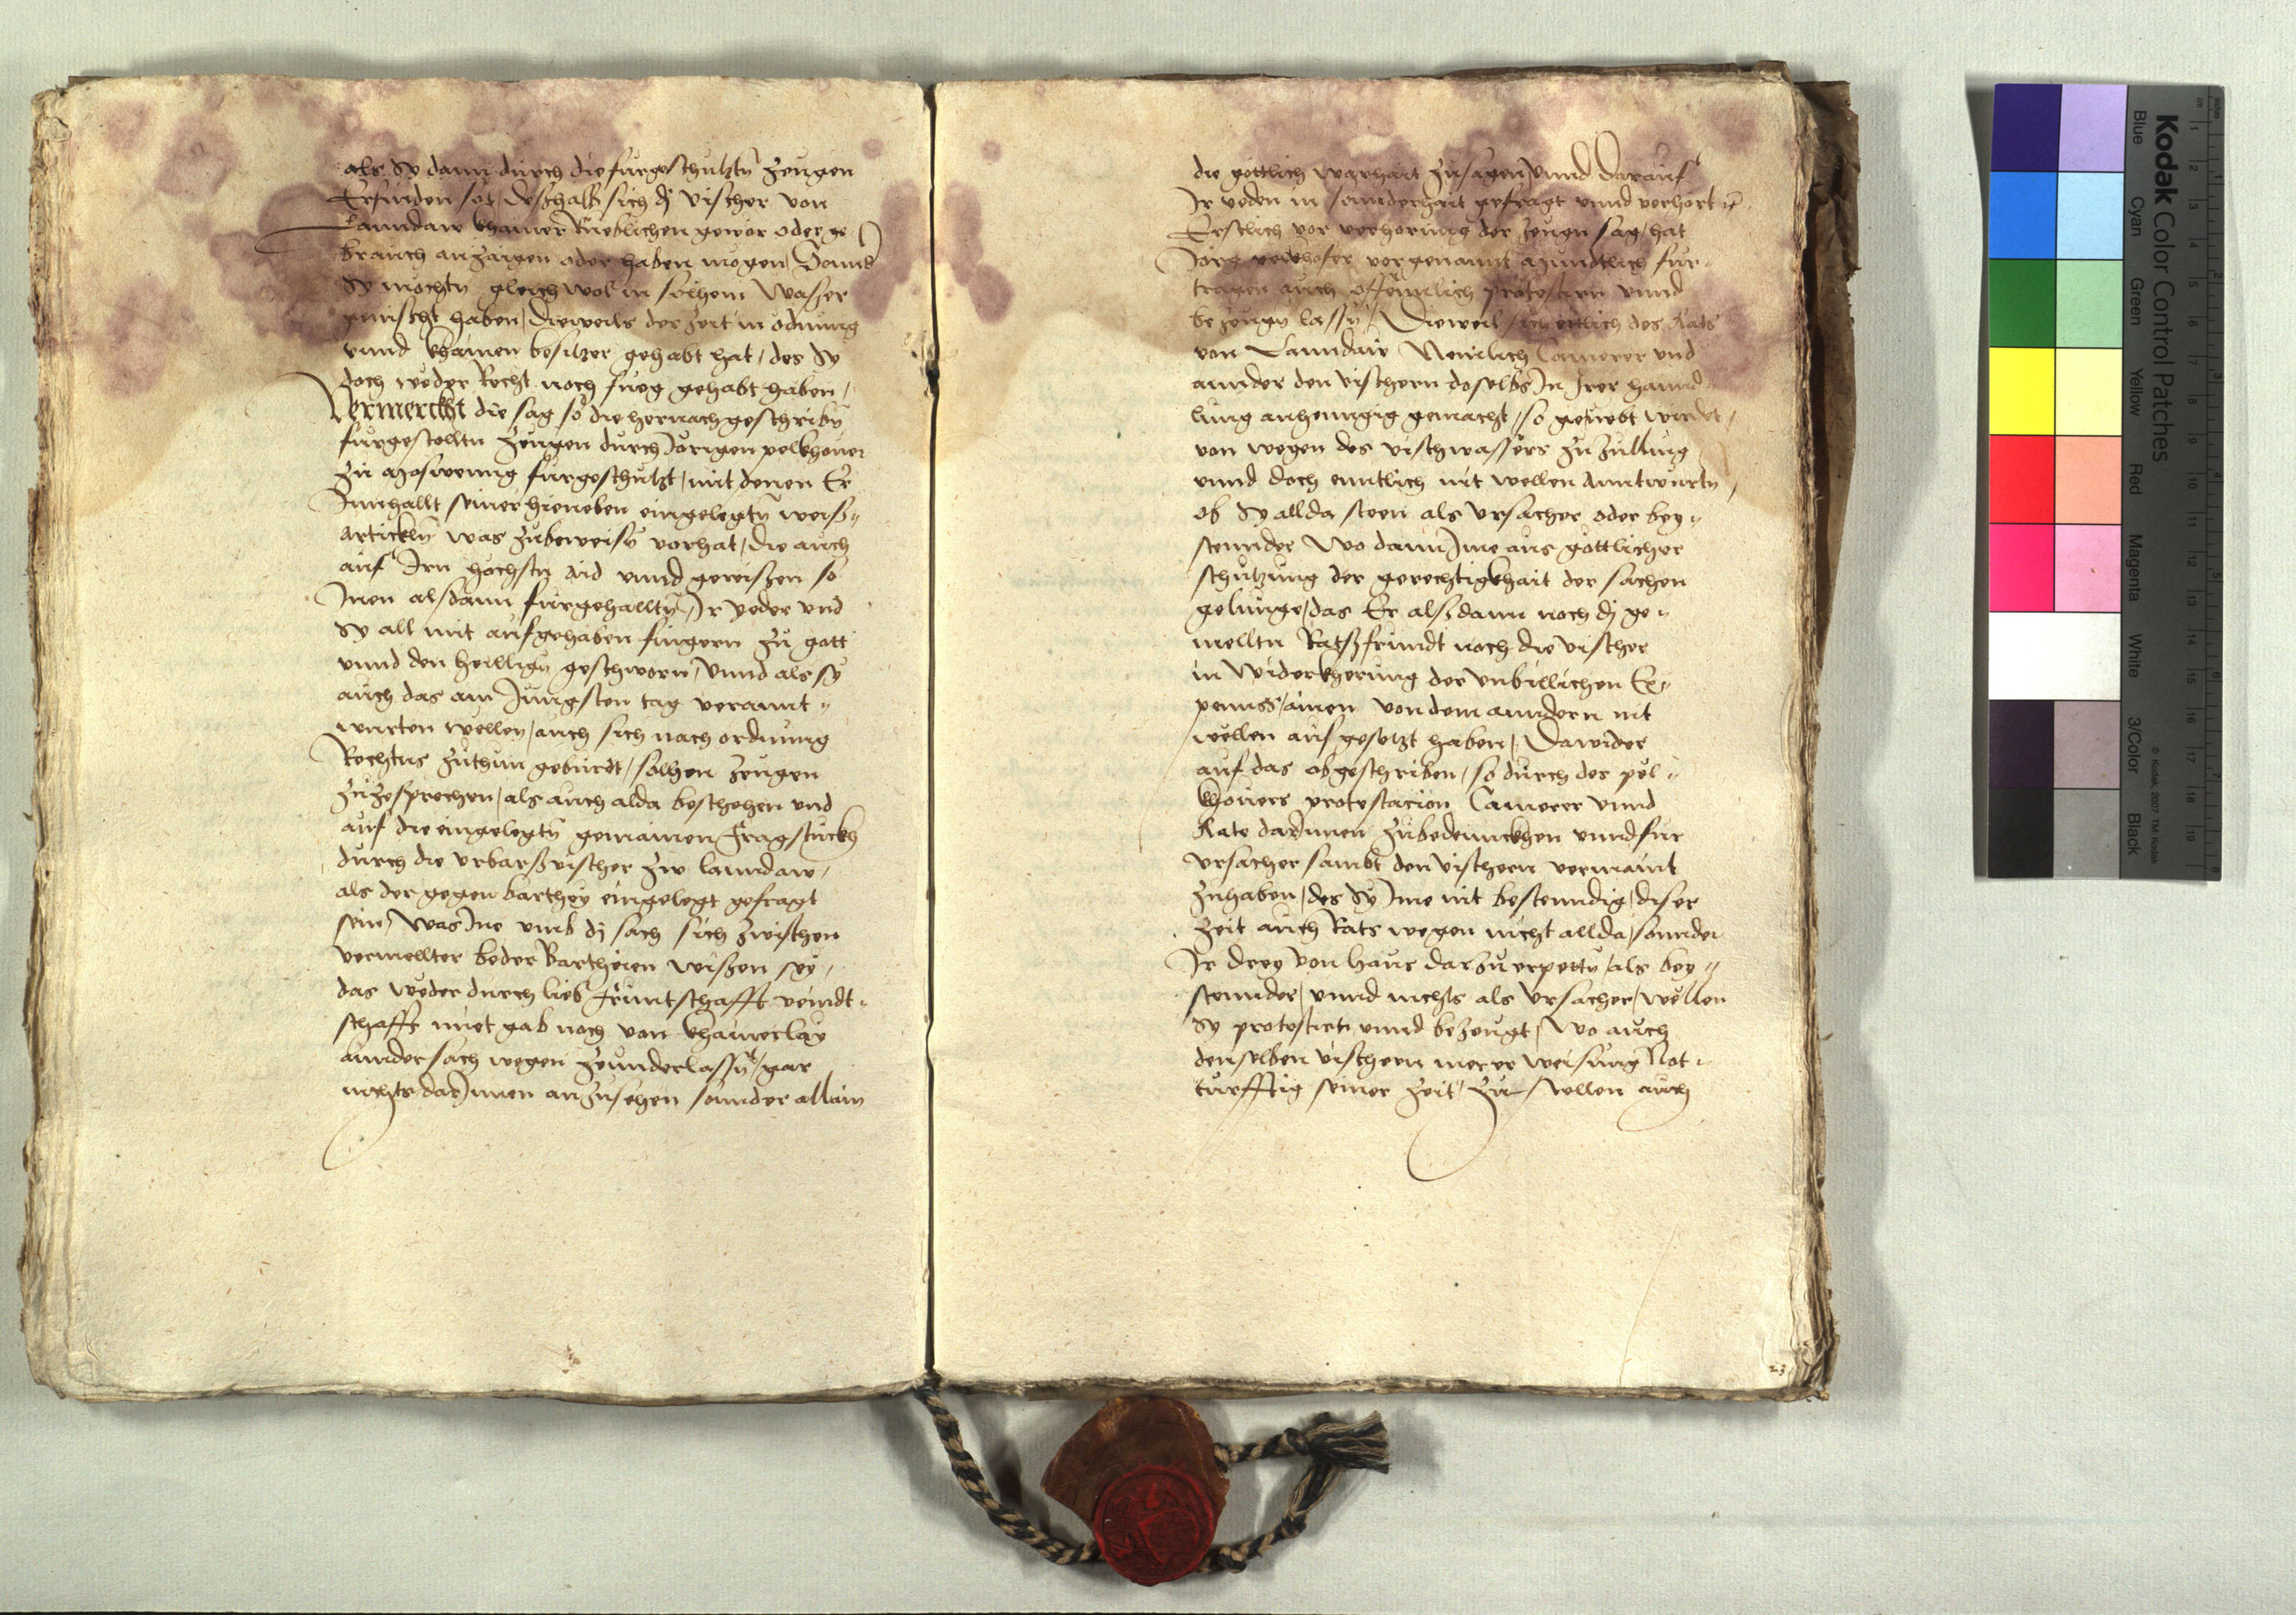 als Sy dann durch die furgeschutztn Zeugen
Erfunden sol, deshalb sich dj vischer von
Lanndaw khainer Rueblichen gewör oder ge
brauch anzaigen oder haben mogen, Sonnd
Sy mochtn gleich wol in solhem Wasser
geuischt haben, dieweils der Zeit in ödnung
vnnd khainen besitzer gehabt hat, des Sy
doch weder Recht noch fueg gehabt haben,
Vermerckht die sag so die hernach geschribn
furgestelltn Zeugen durch Jorigen pelkhouer
zu Mosweng furgeschutzt, mit denen Er
Innhallt seiner hieneben eingelegtn weiß=
Artickeln was zubeweisn vorhat, die auch
auf Irn hochstn Aid vnnd gewissen so
Inen alsdann furgehalltn, Ir yeder vnd
Sy all mit aufgehaben fingern zu gott
vnnd den heilligen geschworn, vnnd als sy
auch das am Jungsten tag verannt=
wurten wellen, auch sich nach ordnung
Rechtns zuthun geburdt, solhen Zeugen
zuzesprechen, als auch alda beschehen vnd
auf die eingelegtn gemainen Fragstuckh
durch die vrbarßvischer zw lanndaw,
als der gegen barthey eingelegt gefragt
sein, Was Ine vmb dj sach sich zwischen
vermellter beder Bartheien wissen sey,
das weder durch lieb fruntschafft veindt=
schafft miet gab noch von khainerlay
annder sach wegen zeunderlassn, gar
nichts darJnnen anzusehen sonnder allain
die göttlich warhait zusagen, vnnd darauf
Ir yeden in sonnderhait gefragt vnnd verhört
Erstlich vor verhorung der Zeugn sag, hat
Jörg pelkhofer vorgenannt Mundtlich fur=
tragen auch offennlich protestirn vnnd
bezeugn lassn, Dieweil sich ettlich des Rats
von Lanndaw Nemlich Camerer vnd
annder den vischern doselbs In Irer hannd
lung anhenngig gemacht, so geuebt wirdet,
von wegen des vischwassers zu Zullung
vnnd doch enntlich nit wellen Anntwurtn,
ob Sy allda steen als vrsacher oder bey=
stennder Wo dann Ime aus göttlicher
schutzung der gerechtigkhait der sachen
gelunge, das Er alßdann noch dj ge=
melltn Ratßfrundt noch die vischer
in Widerkherung der vnbillichen Ex=
pennss, ainen von dem anndern nit
wellen aufgesetzt haben, Dawider
auf das obgeschriben, so durch des pel=
khouers protestacion Camerer vnnd
Rate darJnnen zubedennckhen vnnd fur
vrsacher sambt den vischern vermaint
zuhaben, des Sy Ime nit bestenndig, diser
Zeit auch Rats wegen nicht allda, sonnder
Ir drey von haus darzu erpettn, als bey=
stennder, vnnd nichts als vrsacher, wellen
Sy protestirt vnnd bezeugt, Wo auch
denselben vischern merer weisung Not=
turfftig seiner Zeit, zu wellen auch
23
Kodak Color Control Patches
Blue
Cyan
Green
Yellow
Red
Magenta
White
3/Color
Black
© Kodak, 2007 TM: Kodak